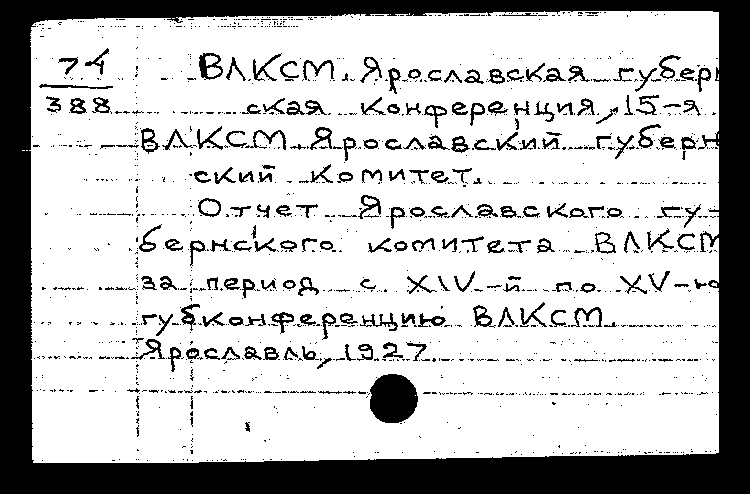 74 ВЛКСМ. Ярославская губерн
388 ская конференция, 15-я
ВЛКСМ. Ярославский губерн
ский комитет.
Отчет Ярославского гу-
бернского комитета ВЛКСМ
за период с XIV-й по XV-ю
губконференцию ВЛКСМ.
Ярославль, 1927